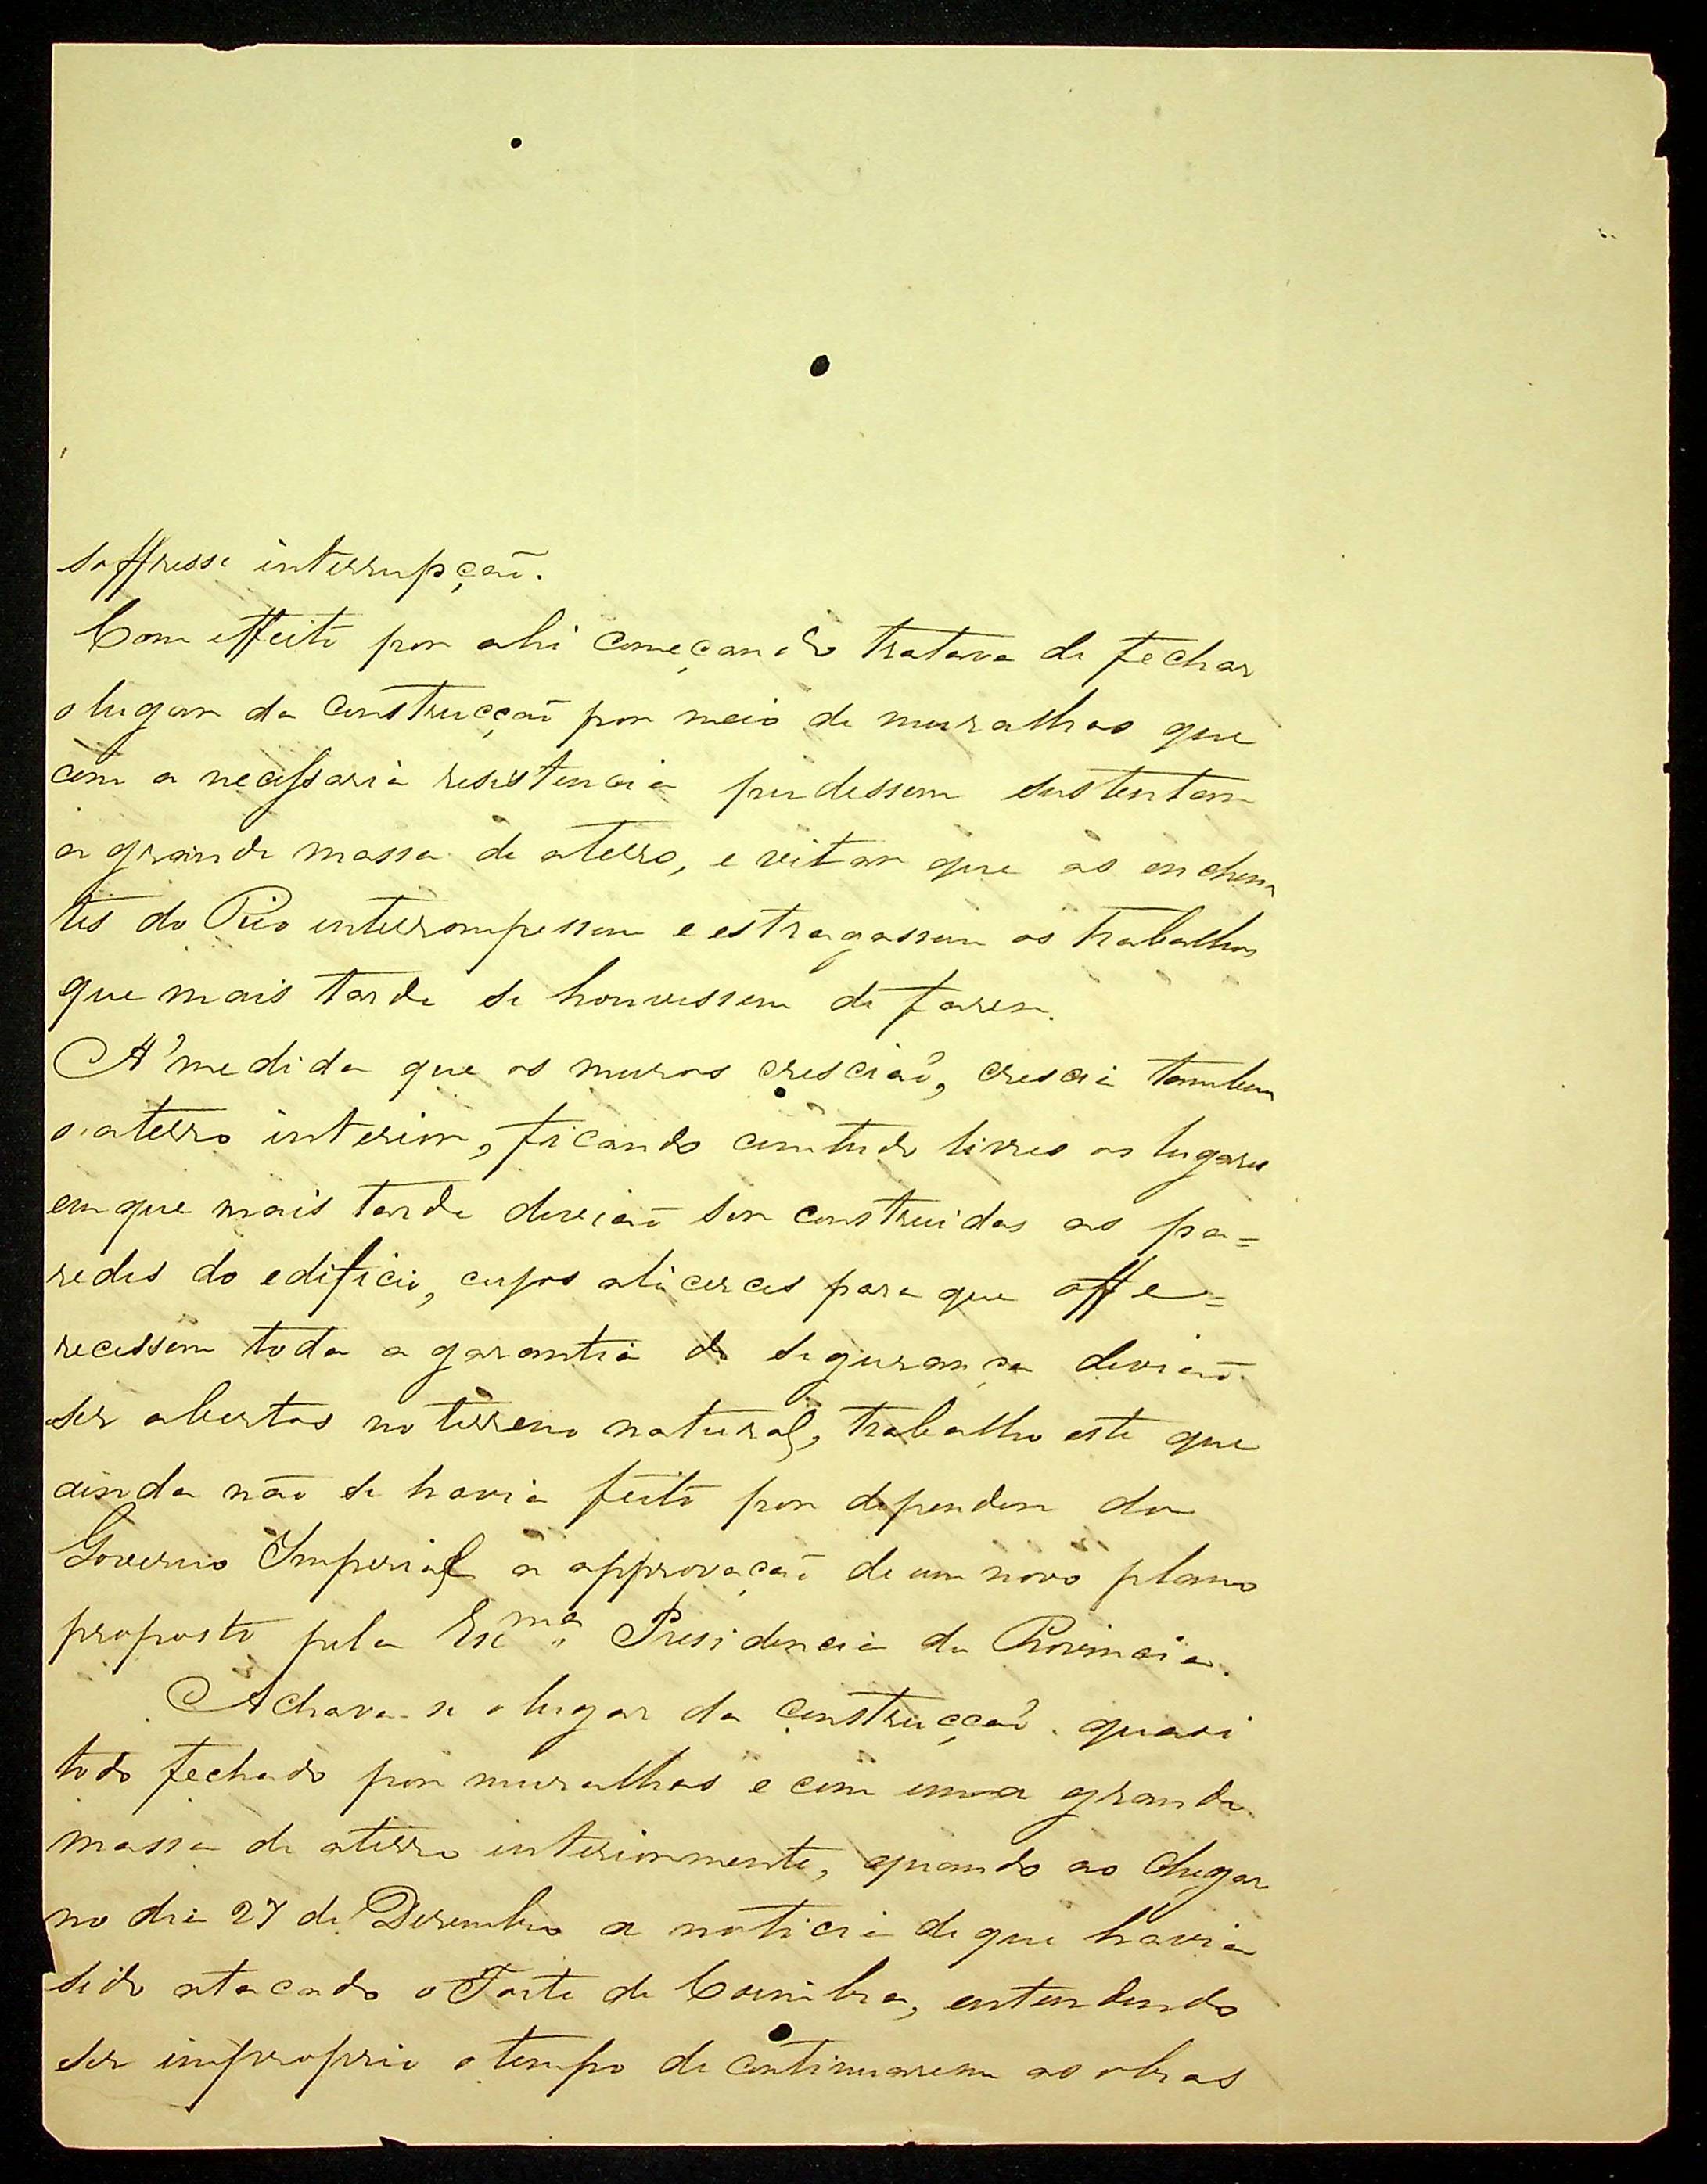 soffresse interrupção.
Com effeito por ahi começando tratava de fechar
o lugar da construcção por meio de muralhas que
com a necessaria resistencia pudessem sustentar
a grande massa de aterro, e vitar que as enchen
tes do Rio interrompessem e estragassem os trabalhos
que mais tarde se houvessem de fazer.
A' medida que os muros crescião, crescia tambem
o aterro interior, ficando comtudo livres os lugares
em que mais tarde devião ser construidas as pa=
redes do edificio, cujos alicerces para que offe=
recessem toda a garantia de segurança devião
ser abertos no terreno natural, trabalho este que
ainda não se havia feito por depender do
Governo Imperial a approvação de um novo plano
proposto pela Exma. Presidencia da Provincia.
Achava-se o lugar da construcção quasi
todo fechado por muralhas e com uma grande
massa de aterro interiormente, quando ao chegar
no dia 27 de Dezembro a noticia de que havia
sido atacado o Forte de Coimbra, entendendo
ser improprio o tempo de continuarem as obras